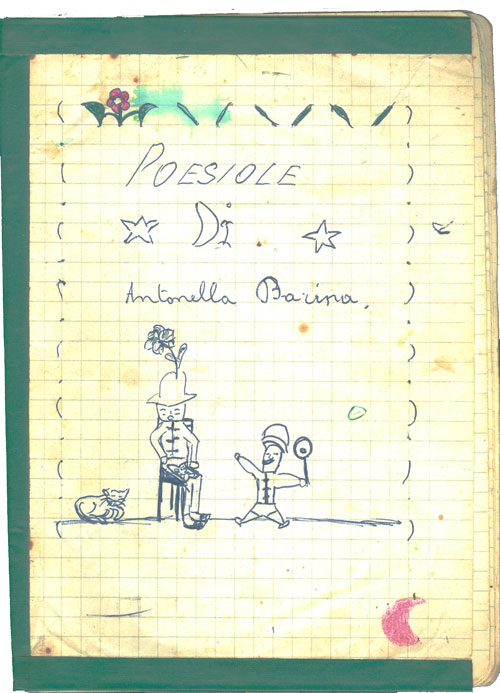 POESIOLE
Di
Antonella Barina.